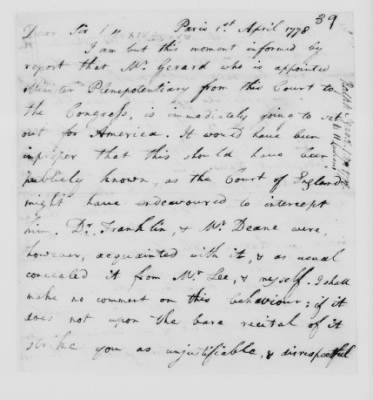 39
Dear Sir Paris 1st April 1778
I am but this moment informed by
report that Mr. Gerard who is appointed
Minister Plenepotentiary from this Court to
the Congress, is immediately going to set
out for America. It would have been
improper that this should have been
publicly known, as the Court of England
might have endeavoured to intercept
him. Dr. Franklin, & Mr. Deane were,
however, acquainted with it, & as usual
concealed it from Mr Lee, & myself. I shall
make no comment on this behaviour; if it
does not upon the bare recital of it
strike you as unjustifiable, & disrespectful